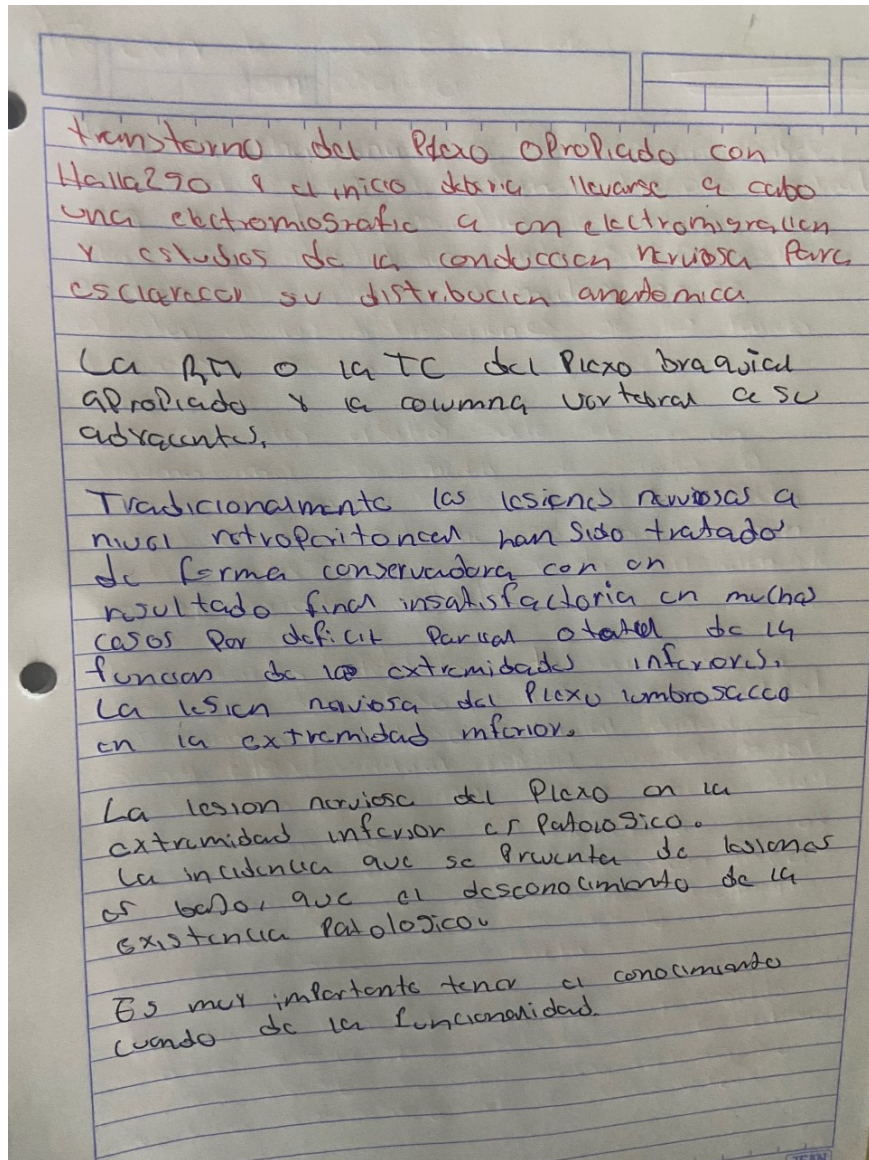 transtorno del Plexo apropiado con
Hallazgo & clinico deberia llevarse a cabo
una electromiografic a con electromigracion
y estudios de la conduccion nerviosa Para
esclarecer su distribucion anatomica
La RM o la TC del Plexo braquial
apropiado y la columna vertebral a su
adyacentes.
Tradicionalmente las lesiones nerviosas a
nivel retroperitoneal han sido tratado
de forma conservadora con un
resultado final insatisfactoria en muchas
casos por deficit Parcial o total de la
funcion de las extremidades inferiores.
La lesion nerviosa del Plexo lumbrosacco
en la extremidad inferior.
La lesion nerviosa del Plexo en la
extremidad inferior es Patologico.
La incidencia que se Presenta de lesiones
es bajo, que el desconocimiento de la
existencia Patologico.
Es muy importante tener el conocimiento
cuando de la funcionalidad.